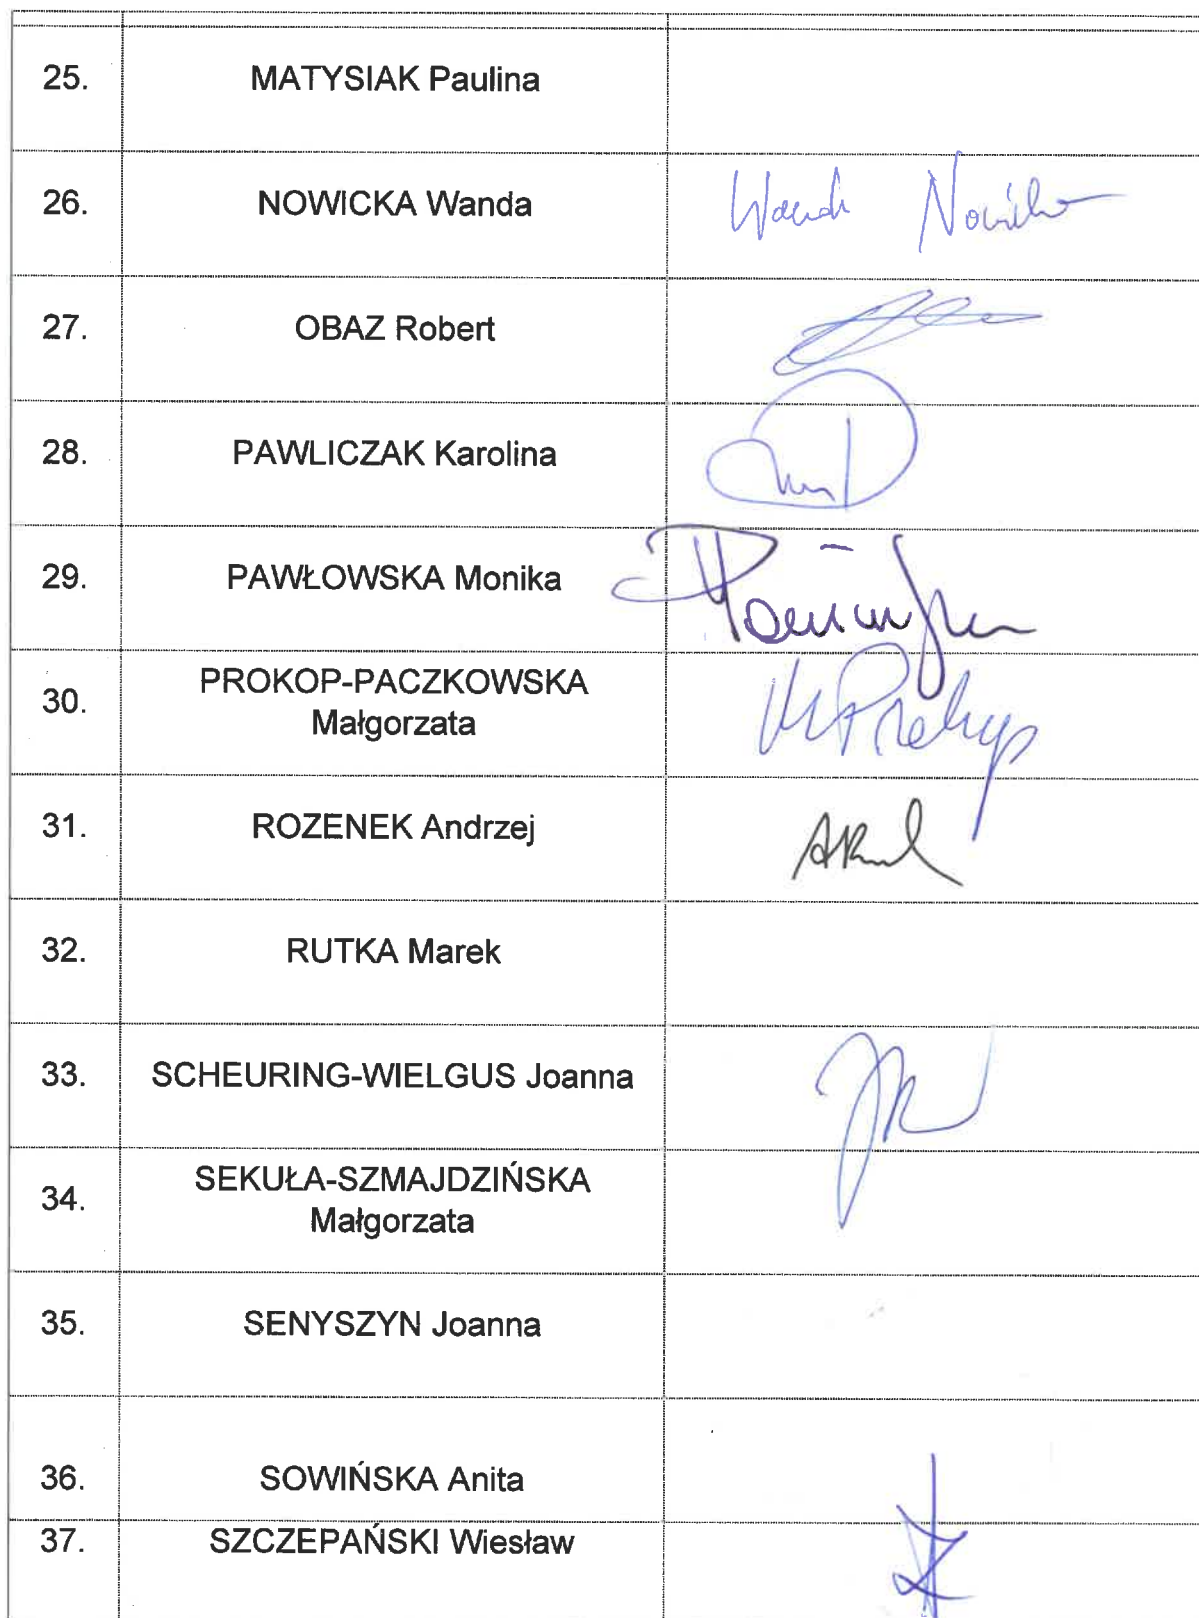 25. MATYSIAK Paulina
26. NOWICKA Wanda Wanda Nowicka
27. OBAZ Robert
28. PAWLICZAK Karolina
29. PAWŁOWSKA Monika
30. PROKOP-PACZKOWSKA
Małgorzata MProkop
31. ROZENEK Andrzej
32. RUTKA Marek
33. SCHEURING-WIELGUS Joanna
34. SEKUŁA-SZMAJDZIŃSKA
Małgorzata
35. SENYSZYN Joanna
36. SOWIŃSKA Anita
37. SZCZEPAŃSKI Wiesław